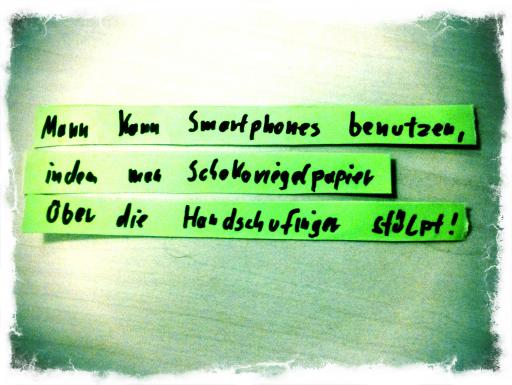 Mann Kann Smartphones benutzen,
indem man Schokoriegelpapier
Über die Handschufinger stülpt!